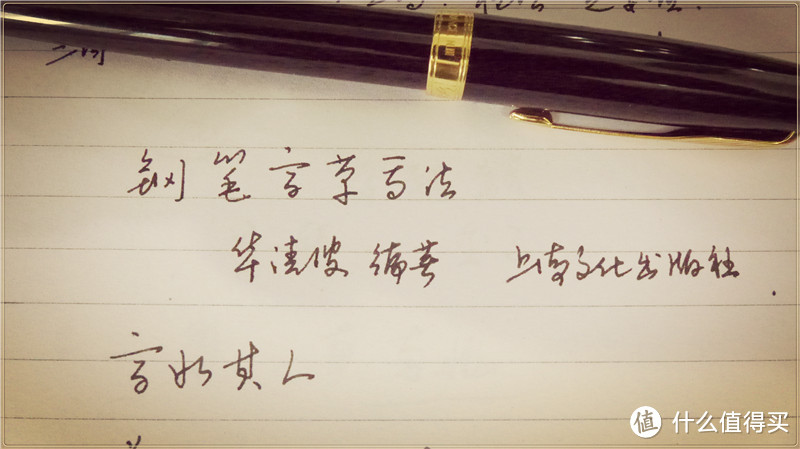 钢笔字草写法
华清 编著 上海文化出版社.
字如其人
值 什么值得买